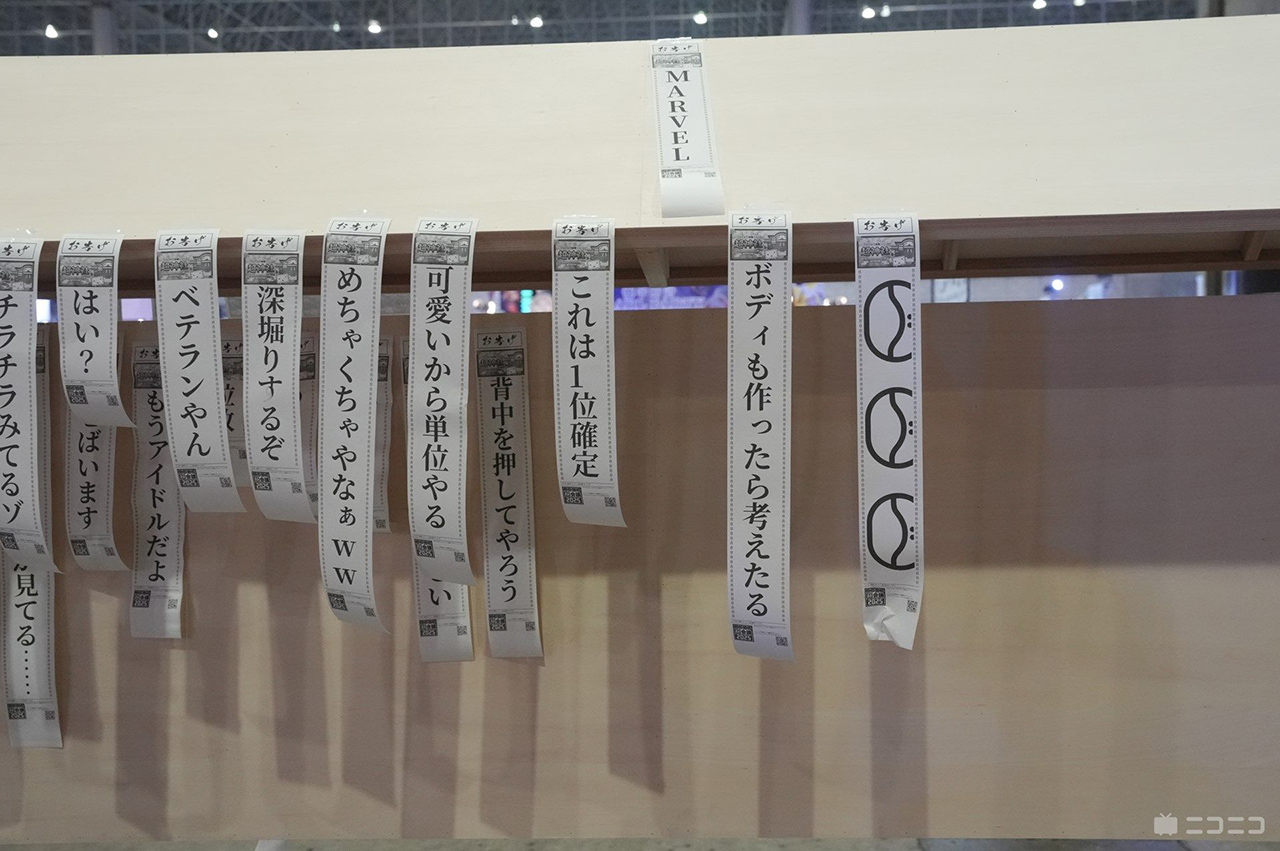 お告げ
MARVEL
お告げ
チラチラみてるゾ
見てる……
お告げ
はい?
ばいます
お告げ
もうアイドルだよ
お告げ
ベテランやん
お告げ
深堀りするぞ
お告げ
めちゃくちゃやなぁww
お告げ
可愛いから単位やる
い
お告げ
背中を押してやろう
お告げ
これは1位確定
お告げ
ボディも作ったら考えたる
お告げ
ニコニコ